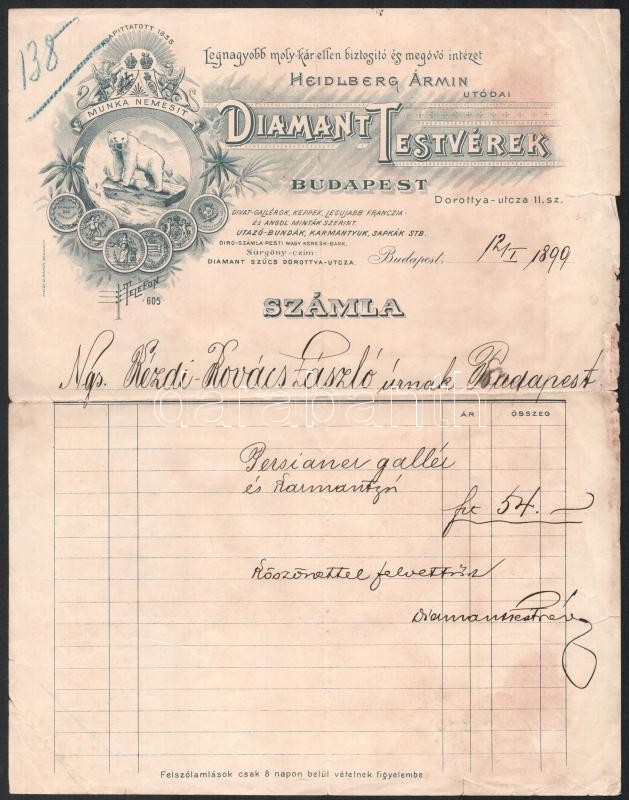 138
ALAPITTATOTT 1855
MUNKA NEMESIT
Legnagyobb moly-kár ellen biztositó és megóvó intézet
HEIDLBERG ÁRMIN
UTÓDAI
DIAMANT TESTVÉREK
BUDAPEST
Dorottya-utcza 11. sz.
DIVAT-GALLÉROK, KEPPEK, LEGUJABB FRANCZIA-
ÉS ANGOL MINTÁK SZERINT.
UTAZÓ-BUNDÁK, KARMANTYUK, SAPKÁK STB.
GIRO-SZÁMLA: PESTI MAGY. KERESK.-BANK.
Sürgöny-czim:
DIAMANT SZÜCS DOROTTYA-UTCZA.
Budapest, 12/I 1899
TELEFON
605
SZÁMLA
Ngs. Kézdi-Kovács László úrnak Budapest
ÁR ÖSSZEG
Persianer gallér
és Karmantyú
frt 54.—
Köszönettel felvettük
Diamanttestvérek
darabanth
Felszólamlások csak 8 napon belül vétetnek figyelembe